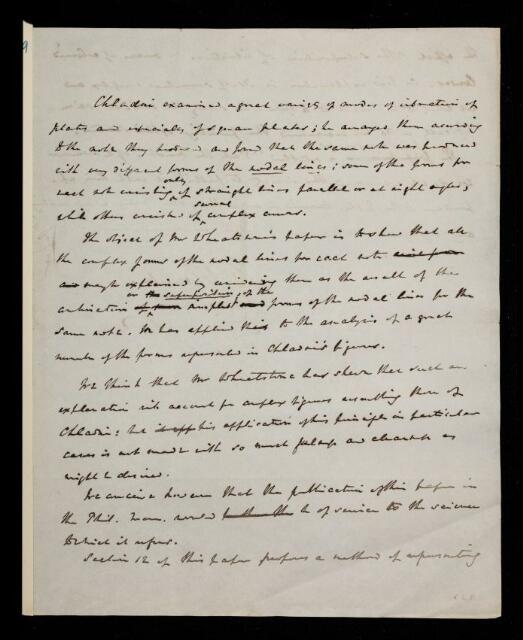 Chladni examined a great variety of modes of vibration of
plates and especially of square plates; he arranged them according
to the note they produced and found that the same note was produced
with very different forms of the nodal lines; some of the forms for
only
each note consisting of straight lines parallel or at right angles,
several
while others consisted of complex curves.
The object of Mr Wheatstone's paper is to show that all
the complex forms of the nodal lines for each note
might explained by considering them as the result of the
or the superposition of the
combination simplest forms of the nodal lines for the
same note. He has applied this to the analysis of a great
number of the forms represented in Chladni's figures.
We think that Mr Wheatstone has shewn that such an
explanation will account for complex figures resembling those of
Chladni: but his application of this principle in particular
cases is not made with so much and clearness as
might be desired.
We conceive however that the publication of this paper in
the Phil. Trans. would be of service to the science
to which it refers.
Section 12 of this paper proposes a method of representing